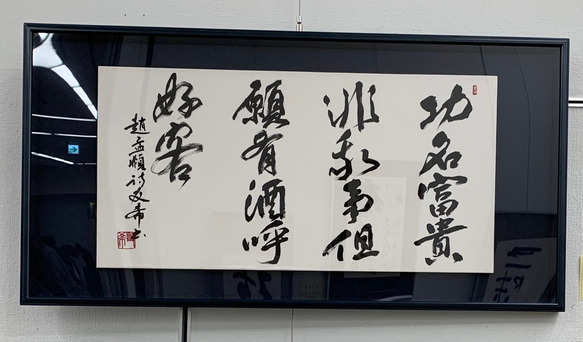 功名富貴
非我事但
願有酒呼
好客
趙孟頫詩文希书